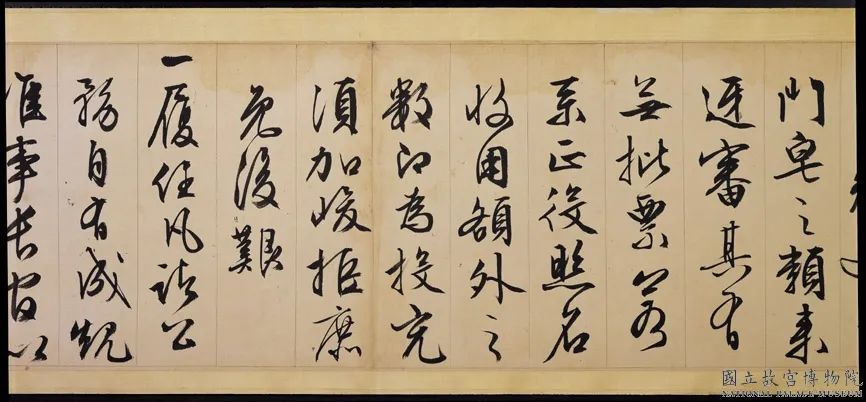 門皂之類來
迓審其有
無批票若
系正役照名
收用額外之
數即為投充
須加峻拒庶
免後艱
一履任凡諸公
務自有成規
事長官以
國立故宮博物院
NATIONAL PALACE MUSEUM